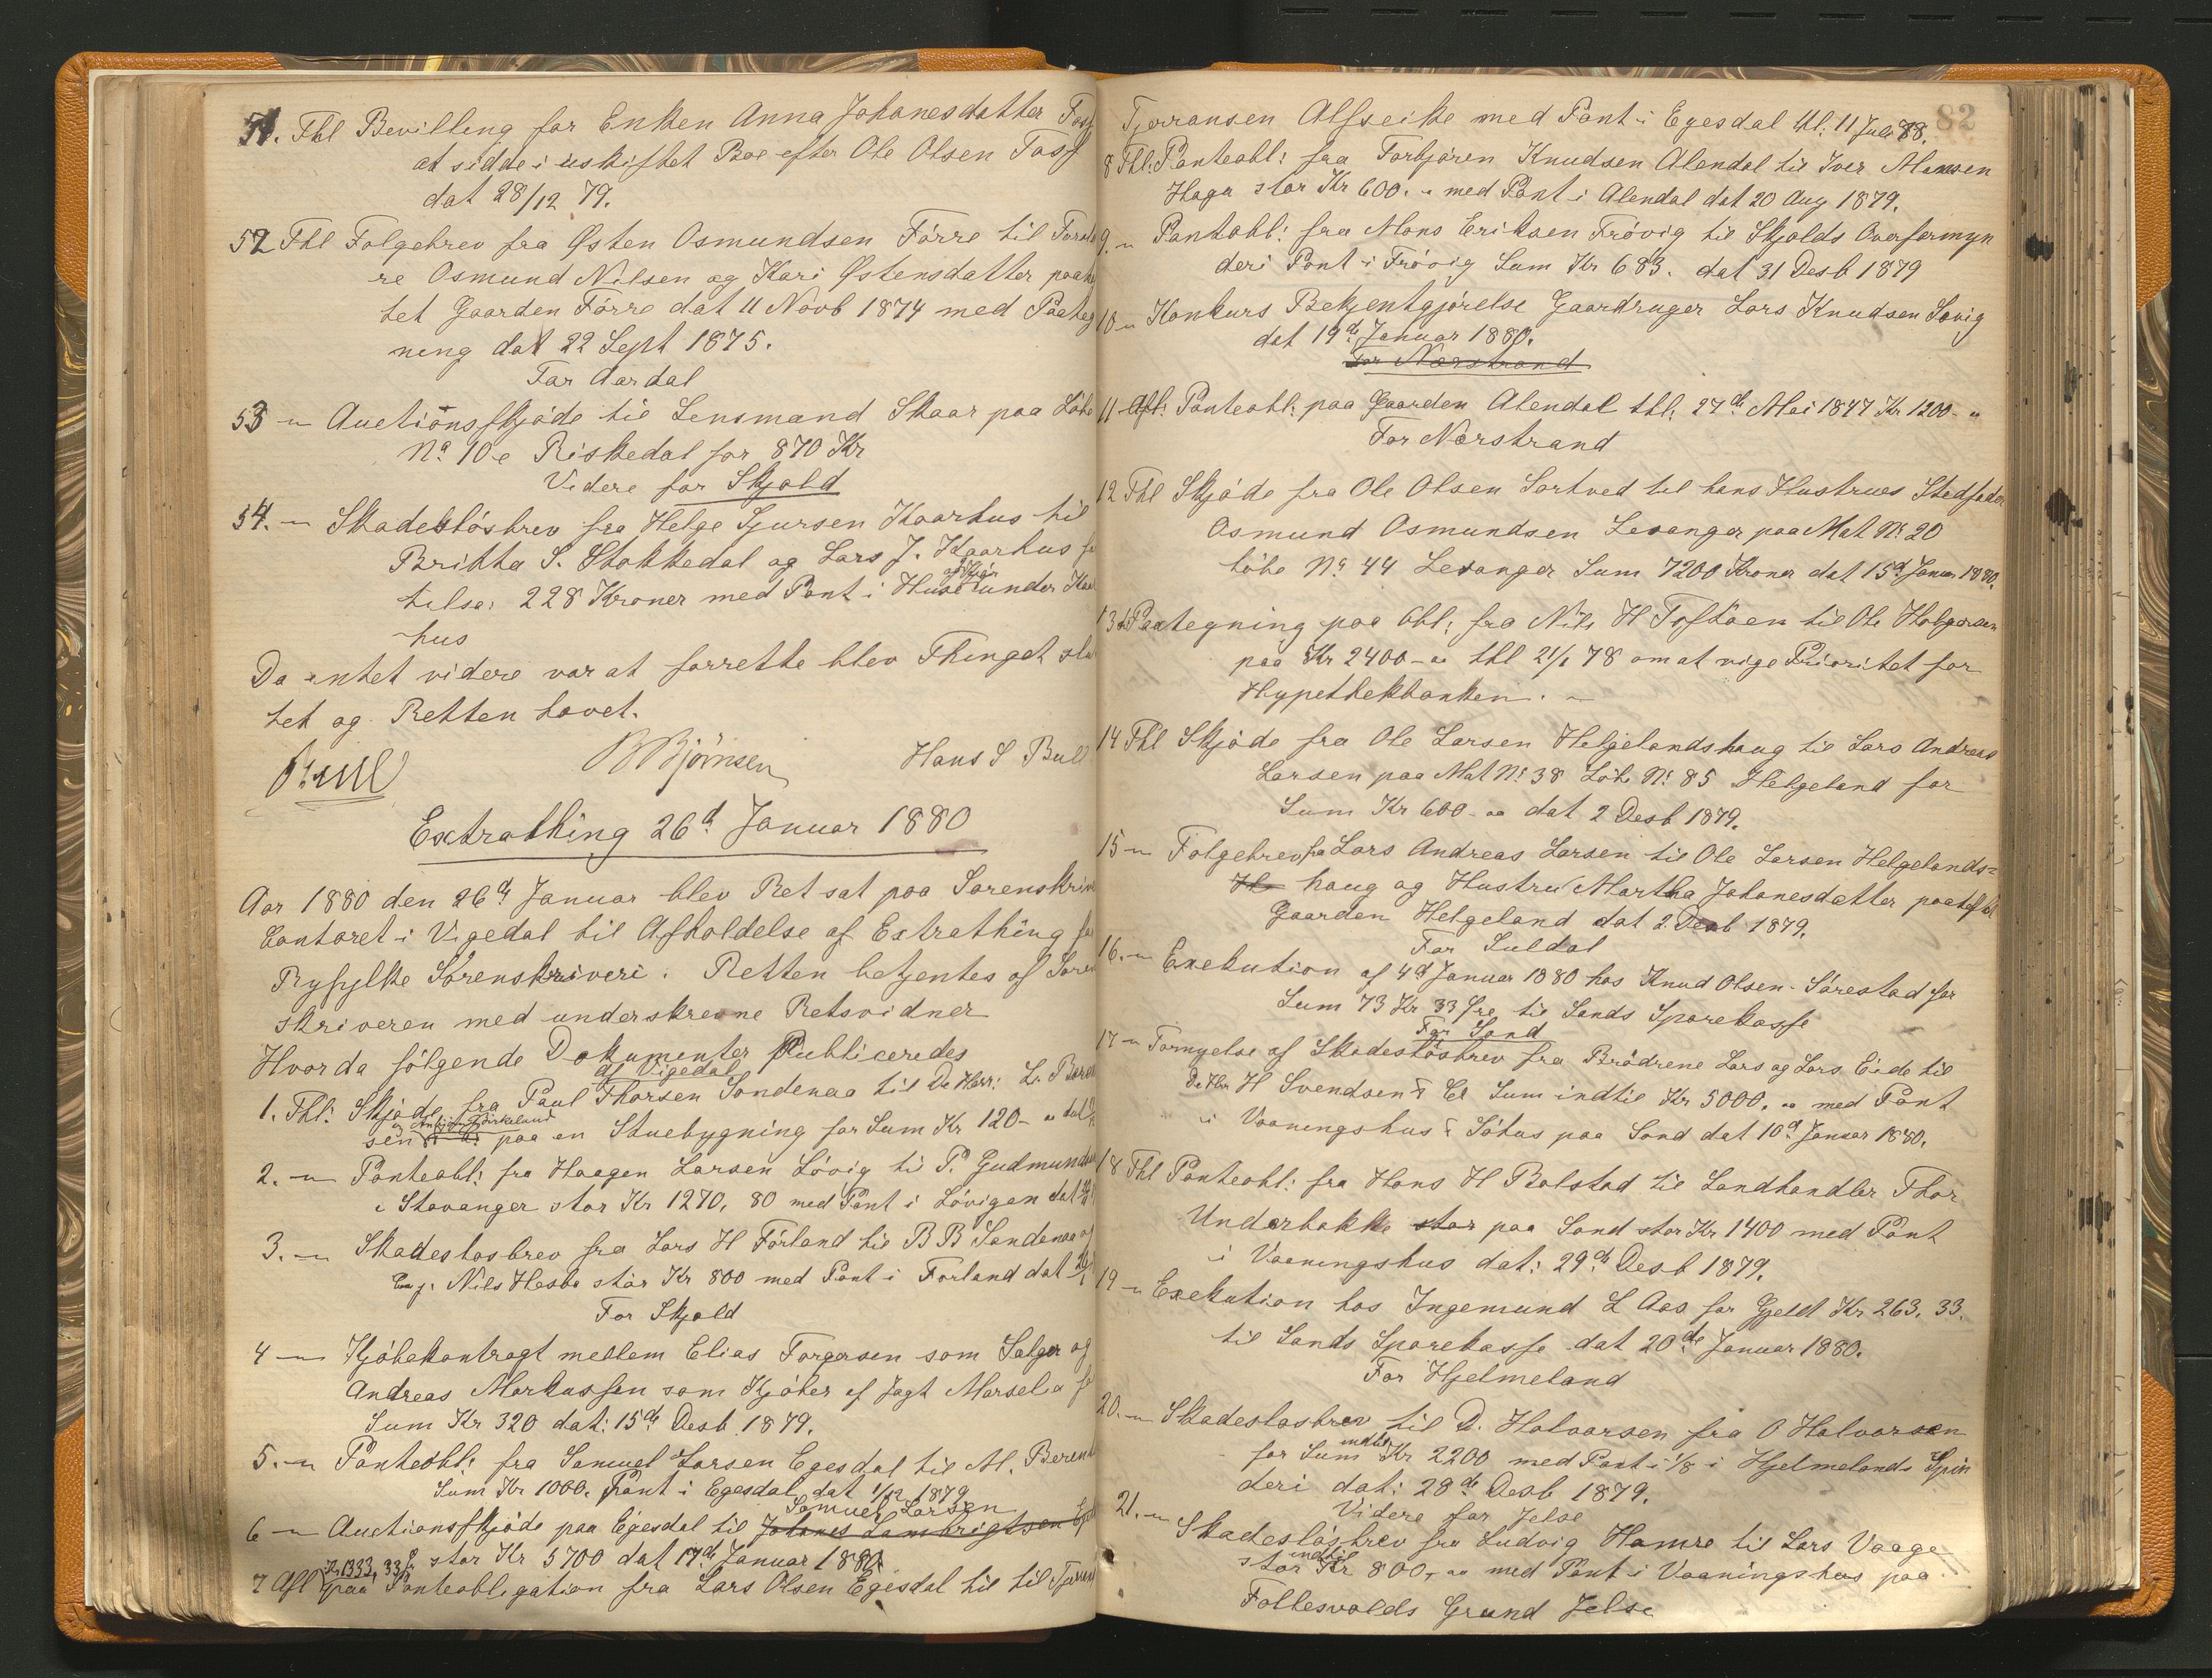 51. Thl Bevilling for Enken Anna Johanesdatter
at sidde i uskiftet Boe efter Ole Olsen Toss
dat 28/12 79.
52 Thl Folgebrev fra Østen Osmundsen Förre til
re Osmund Nilsen og Kari Østensdatter
tet Gaarden Förre dat 11 Novb 1874 med Paateg
ning dat 22 Sept 1875.
For Aardal
53 -"- Auctionsskjöde til Lensmand Skaar paa Löbe
No 10e Riskedal for 870 Kr
Videre for Skjold
54. -"- Skadeslösbrev fra Helge Sjursen Kaarhus til
Britha S. Stokkedal og Lars J. Kaarhus
228 Kroner med Pant i Huse under
hus
Da intet videre var at forrette blev Thinget slu
tet og Retten hævet.
BBjörnsen Hans S Bull
Extrathing 26d Januar 1880
Aar 1880 den 26d Januar blev Ret sat paa Sorenskriver
Contoret i Vigedal til Afholdelse af Extrathing for
Ryfylke Sorenskriveri. Retten betjentes af Soren
skriveren med underskrevne Retsvidner
Hvor da fölgende Dokumenter Publiceredes
af Vigedal
1. Thl: Skjöde fra Paul Thorsen Söndenaa til De Herr: L.
sen paa en Stuebygning for Sum Kr 120-
2. -"- Panteobl: fra Haagen Larsen Lövig til P. Gudmundsen
i Stavanger stor Kr 1270, 80 med Pant i Lövigen dat
3. -"- Skadeslosbrev fra Lars H Förland til B B Sandenaa og
Nils Hesbø stor Kr 800 med Pant i Forland dat
For Skjold
4 -"- Kjöbekontragt mellem Elias Torgersen som Selger og
Andreas Markussen som Kjöber af Jagt Marselia for
Sum Kr 320 dat: 15de Desb 1879.
5. -"- Panteobl: fra Samuel Larsen Egesdal til M. Berent
Sum Kr 1000. Pant i Egesdal dat 1/12 1879
Samuel Larsen
6 -"- Auctionsskjöde paa Egesdal til Johanes Lambrigtsen
stor Kr 5700 dat 17de Januar 1880
Kr 1333, 33
7 Afl paa Panteobligation fra Lars Olsen Egesdal til
82
Tjerransen Alfseike med Pant i Egesdal thl: 11 Juli 88.
8 Thl: Panteobl: fra Torbjören Knudsen Ålendal til Iver Monsen
Haga stor Kr 600. " med Pant i Alendal dat 20 Aug 1879.
9. -"- Pantobl: fra Mons Eriksen Frövig til Skjolds Overformyn
deri Pant i Frövig Sum Kr 683. dat 31 Desb 1879
10 -"- Konkurs Bekjentgjörelse Gaardruger Lars Knudsen Sövig
dat 19de Januar 1880.
For Nærstrand
11 Afl: Panteobl: paa Gaarden Alendal thl: 27de Mai 1847 Kr 1200- "
For Nærstrand
12 Thl Skjöde fra Ole Olsen Sortved til hans Hustrues Stedfader
Osmund Osmundsen Levanger paa Mat No 20
löbe No 44 Levanger Sum 7200 Kroner dat 15d Januar 1880.
13 Paategning paa Obl: fra Nils H Toftöen til Ole Holgersen
paa Kr 2400- " thl 21/1 78 om at vige Prioritet for
Hypothekbanken. -
14 Thl Skjöde fra Ole Larsen Helgelandshaug til Lars Andreas
Larsen paa Mat No 38 Löbe No 85 Helgeland for
Sum Kr 600- " dat 2 Desb 1879.
15 -"- Folgebrev fra Lars Andreas Larsen til Ole Larsen Helgelands=
haug og Hustru Martha Johanesdatter paaheftet
Gaarden Helgeland dat 2 Desb 1879.
For Suldal
16. -"- Exekution af 4d Januar 1880 hos Knud Olsen Sörestad for
Sum 73 Kr 33 Øre til Sands Sparekasse
For Sand
17 -"- Fornyelse af Skadeslösbrev fra Brödrene Lars og Lars Eide til
De Hrr H Svendsen & Cl Sum indtil Kr 5000. " med Pant
i Vaaningshus & Söhus paa Sand dat 10d Januar 1880.
18 Thl Panteobl: fra Hans H Bolstad til Landhandler Thor
Underbakke stor paa Sand stor Kr 1400 med Pant
i Vaaningshus dat: 29de Desb 1879.
19 -"- Exekution hos Ingemund L Aas for Gjeld Kr 263, 33.
til Sands Sparekasse dat 20de Januar 1880.
For Hjelmeland
20. -"- Skadeslosbrev til D. Halvorsen fra O Halvorsen
for Sum indtil Kr 2200 med Pant i 1/8 i Hjelmelands Spin
deri dat: 28de Desb 1879.
Videre for Jelse
21. -"- Skadeslösbrev fra Ludvig Hamre til Lars Vaage
stor indtil Kr 800, " med Pant i Vaaningshus paa
Follesvolds Grund Jelse